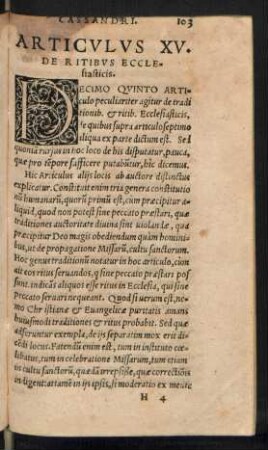 CASSANDRI. 103
ARTICVLVS XV.
DE RITIBVS ECCLE-
siasticis.
DECIMO QVINTO ARTI-
culo peculiariter agitur de tradi
tionib. & ritib. Ecclesiasticis,
de quibus supra articulo septimo
aliqua ex parte dictum est. Sed
quoniã rursus in hoc loco de his disputatur, pauca,
quæ pro tẽpore sufficere putabũtur, hîc dicemut.
Hic Articulus alijs locis ab auctore distinctius
explicatur. Constituit enim tria genera constitutio
nũ humanarũ, quorũ primũ est, cum præcipitur a-
liquid, quod non potest sine peccato præstari, quæ
traditiones auctoritate diuina sint violandæ, quæ
præcipitur Deo magis obediendum quàm homini-
bus, vt de propagatione Missarũ, cultu sanctorum.
Hoc genus traditionũ notatur in hoc articulo, cùm
ait eos ritus seruandos, qui sine peccato præstari pos
sunt. indicãs aliquos esse ritus in Ecclesia, qui sine
peccato seruari nequeant. Quod si verum est, ne-
mo Christianæ & Euangelicæ puritatis amans
huiusmodi traditiones & ritus probabit. Sed quæ
adferuntur exempla, de ijs separatim mox erit di-
cẽdi locus. Fatendũ enim est, tum in instituto cæ-
libatus, tum in celebratione Missarum, tum etiam
in cultu sanctorũ, quædã irrepsisse, quæ correctione
indigent: attamẽ in ijs ipsis, si moderatio ex mente
H 4